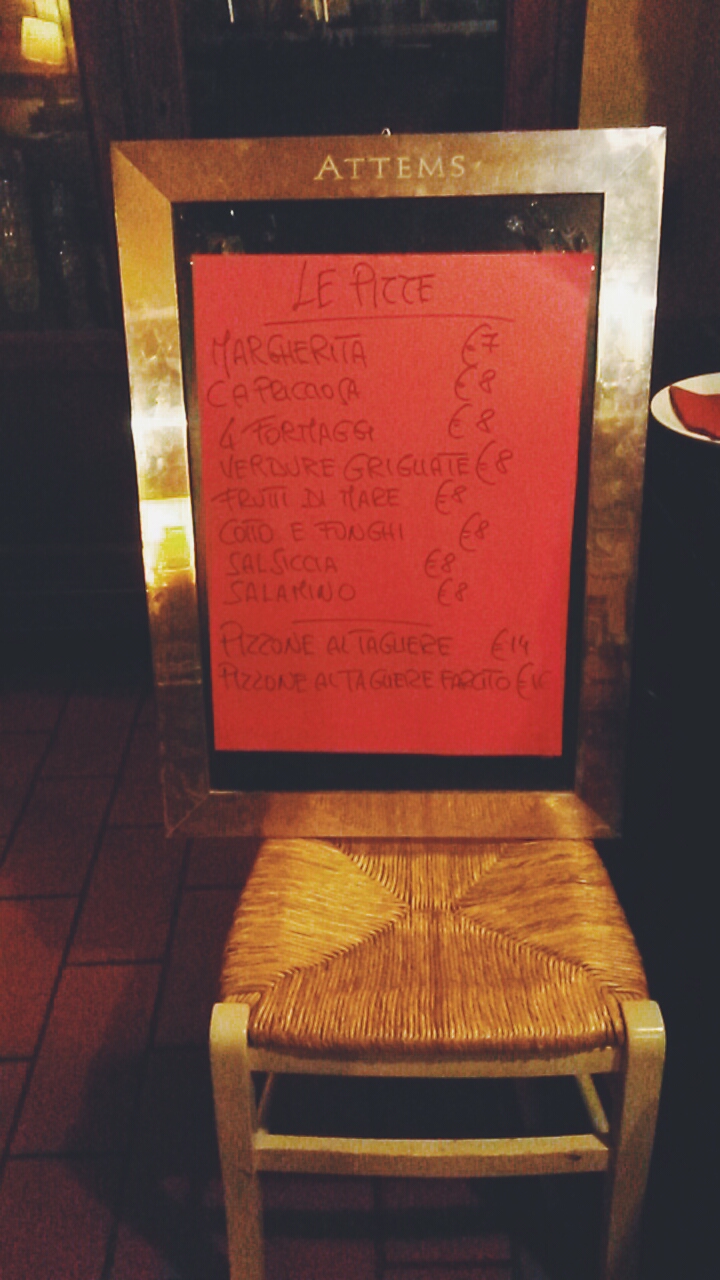 ATTEMS
LE PIZZE
MARGHERITA €7
CAPRICCIOSA €8
4 FORMAGGI €8
VERDURE GRIGLIATE €8
FRUTTI DI MARE €8
COTTO E FUNGHI €8
SALSICCIA €8
SALAMINO €8
PIZZONE AL TAGLIERE €14
PIZZONE AL TAGLIERE FARCITO